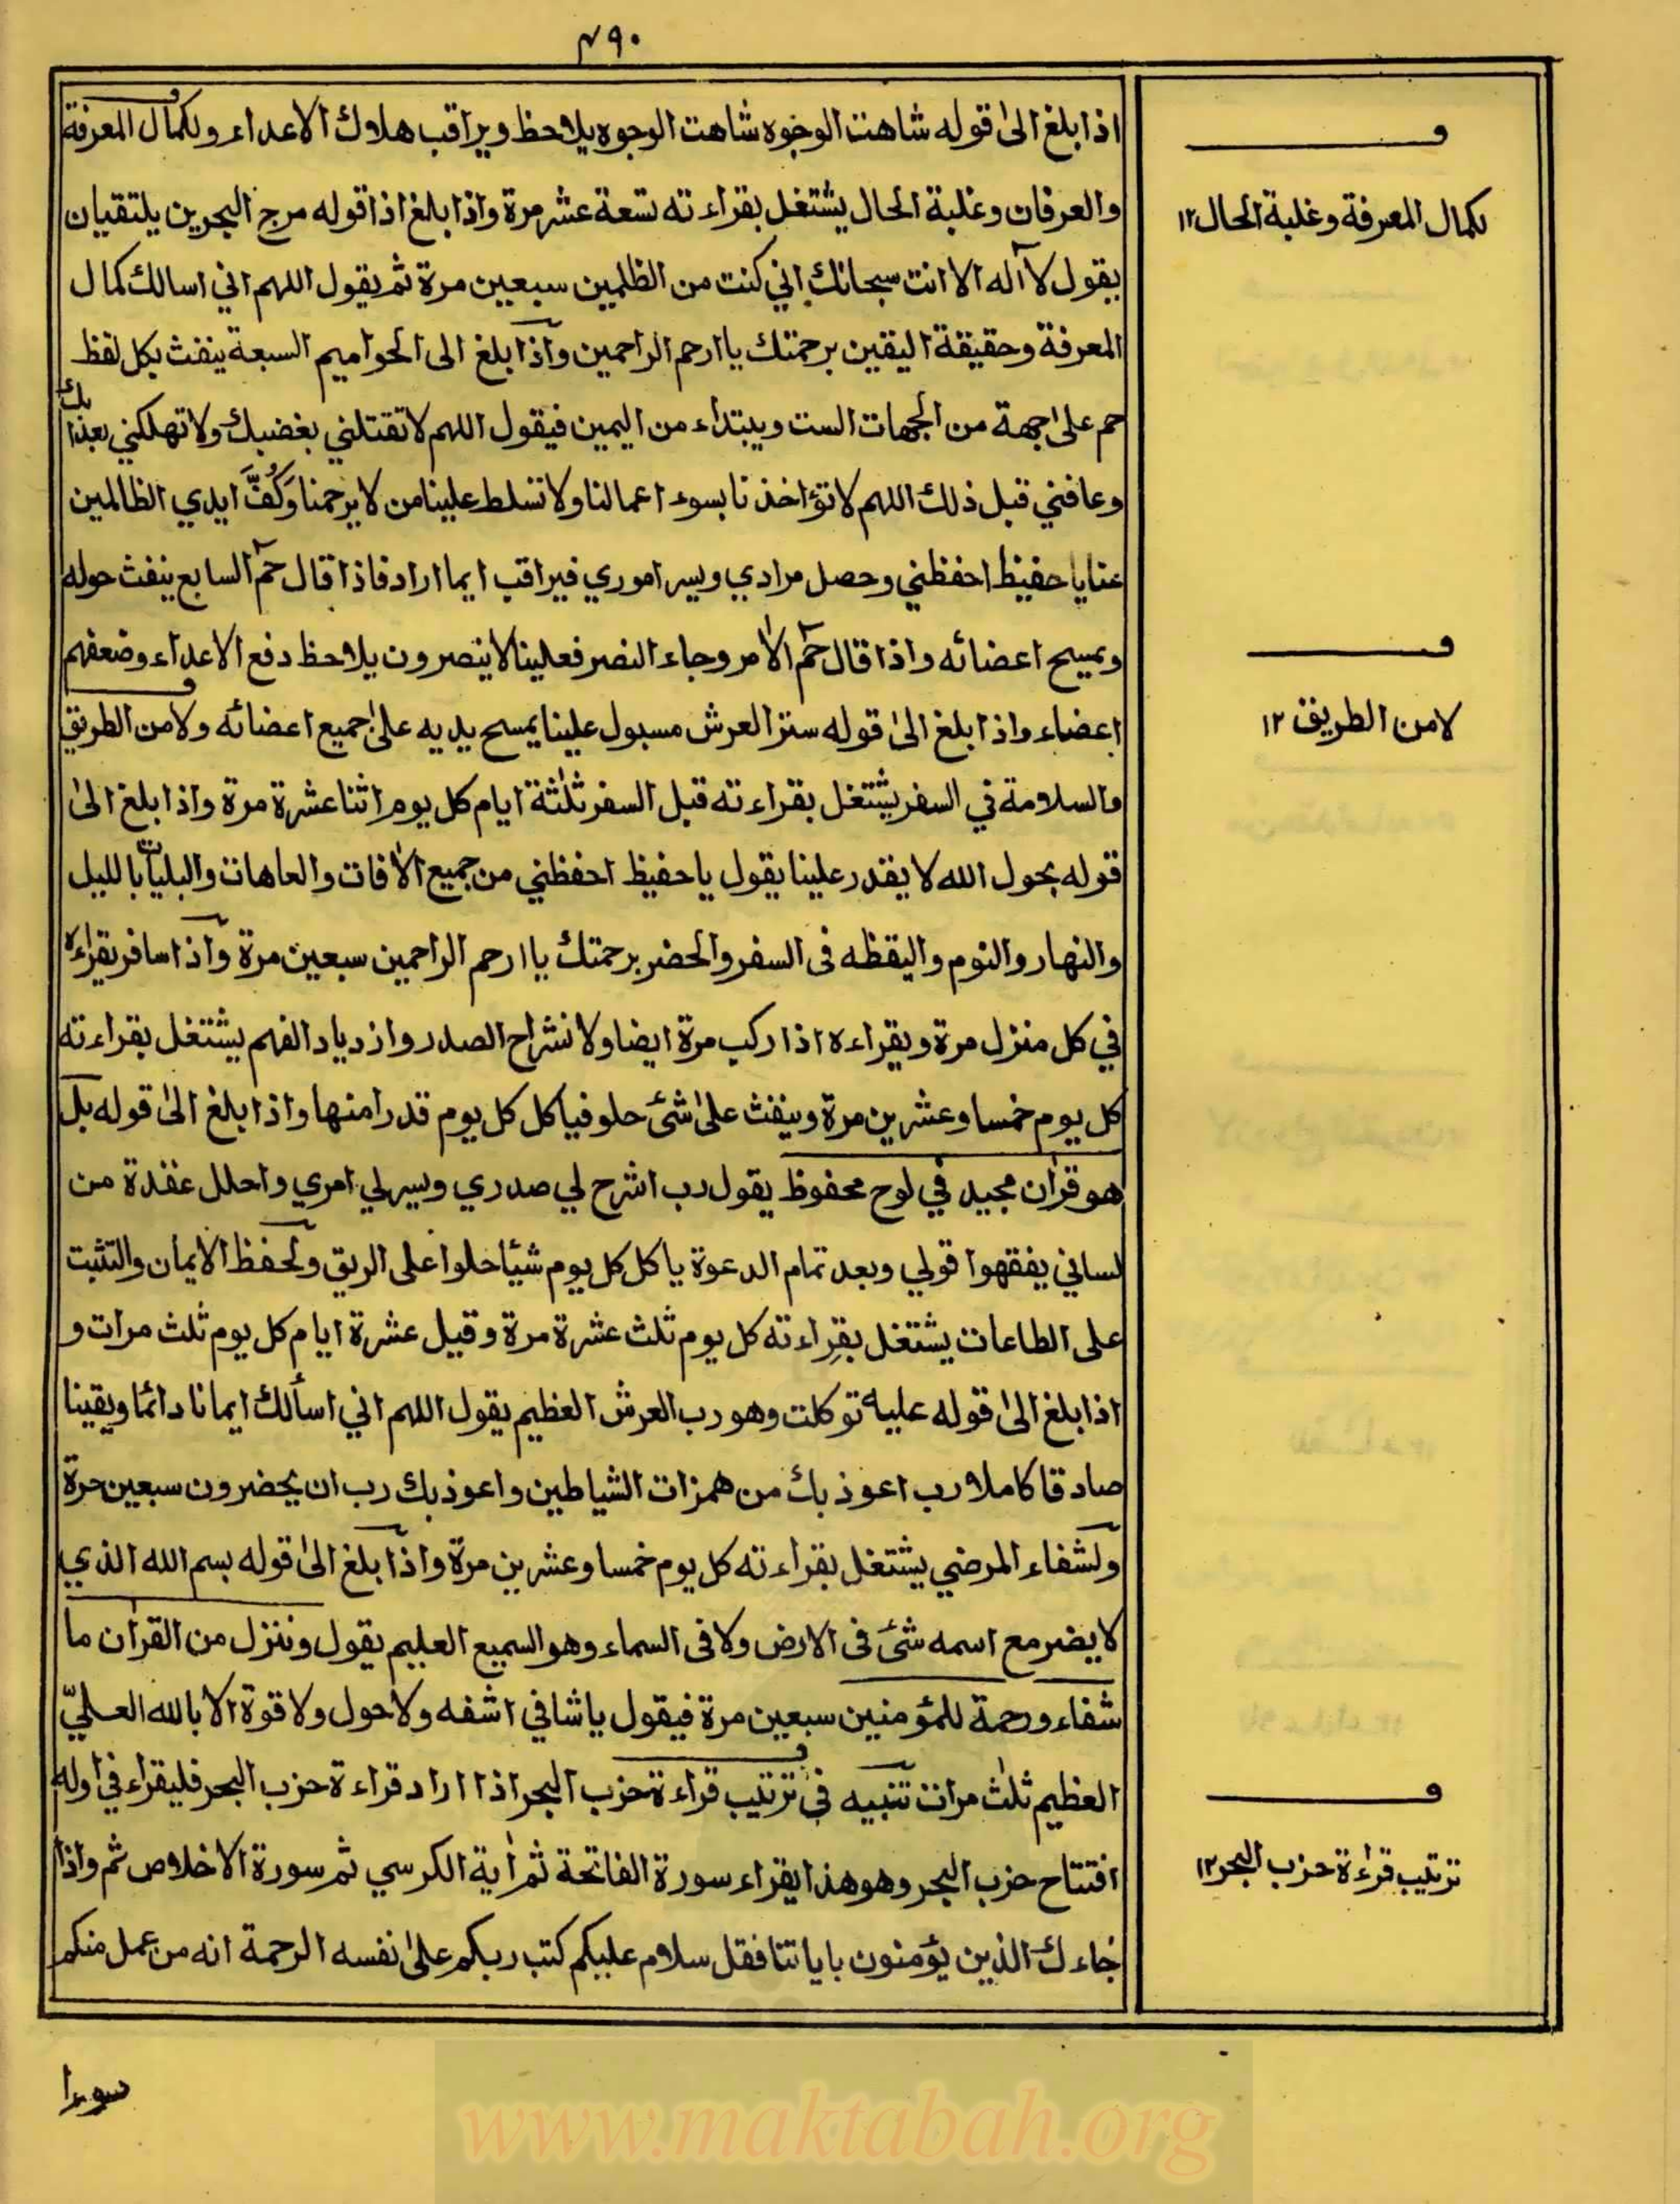 ٤٩٠
اذا بلغ الىٰ قوله شاهت الوجوه شاهت الوجوه يلاحظ ويراقب هلاك الاعداء ولكمال المعرفة
والعرفان وغلبة الحال يشتغل بقراءته تسعة عشر مرة واذا بلغ اذا قوله مرج البحرين يلتقيان
يقول لا آله الا انت سبحانك اني كنت من الظلمين سبعين مرة ثم يقول اللهم اني اسالك كمال
المعرفة وحقيقة اليقين برحمتك يا ارحم الراحمين واذا بلغ الى الحواميم السبعة ينفث بكل لفظ
حم علىٰ جهة من الجهات الست ويبتداء من اليمين فيقول اللهم لا تقتلني بغضبك ولا تهلكني بعذابك
وعافني قبل ذلك اللهم لا تؤاخذنا بسوء اعمالنا ولا تسلط علينا من لا يرحمنا وَكُفَّ ايدي الظالمين
عنا يا حفيظ احفظني وحصل مرادي ويسر اموري فيراقب ايما اراد فاذا قال حٓم السابع ينفث حوله
ويمسح اعضائه واذا قال حٓم الامر وجاء النصر فعلينا لا ينصرون يلاحظ دفع الاعداء وضعفهم
اعضاء واذا بلغ الىٰ قوله ستر العرش مسبول علينا يمسح يديه علىٰ جميع اعضائه ولامن الطريق
والسلامة في السفر يشتغل بقراءته قبل السفر ثلٰثة ايام كل يوم اثنا عشرة مرة واذا بلغ الىٰ
قوله بحول الله لا يقدر علينا يقول يا حفيظ احفظني من جميع الافات والعاهات والبليات بالليل
والنهار والنوم واليقظه فى السفر والحضر برحمتك يا ارحم الراحمين سبعين مرة واذا سافر يقراءه
في كل منزل مرة ويقراءه اذا ركب مرة ايضا ولانشراح الصدر وازدياد الفهم يشتغل بقراءته
كل يوم خمسا وعشرين مرة وينفث علىٰ شئ حلو فياكل كل يوم قدرا منها واذا بلغ الىٰ قوله بل
هو قراٰن مجيد في لوح محفوظ يقول رب اشرح لي صدري ويسر لي امري واحلل عقدة من
لساني يفقهوا قولي وبعد تمام الدعوة ياكل كل يوم شيئا حلوا على الريق ولحفظ الايمان والتثبت
على الطاعات يشتغل بقراءته كل يوم ثلث عشرة مرة وقيل عشرة ايام كل يوم ثلث مرات و
اذا بلغ الىٰ قوله عليه توكلت وهو رب العرش العظيم يقول اللهم اني اسألك ايمانا دائما ويقينا
صادقا كاملا رب اعوذ بك من همزات الشياطين واعوذ بك رب ان يحضرون سبعين مرة
ولشفاء المرضي يشتغل بقراءته كل يوم خمسا وعشرين مرة واذا بلغ الىٰ قوله بسم الله الذي
لا يضر مع اسمه شئ فى الارض ولا فى السماء وهو السميع العليم يقول وننزل من القراٰن ما
شفاء ورحمة للمؤمنين سبعين مرة فيقول يا شافي اشفه ولا حول ولا قوة الا بالله العليّ
العظيم ثلٰث مرات تنبيه في ترتيب قراءة حزب البحر اذا اراد قراءة حزب البحر فليقراء في اوله
افتتاح حزب البحر وهو هذا يقراء سورة الفاتحة ثم اٰية الكرسي ثم سورة الاخلاص ثم واذا
جاءك الذين يؤمنون باياتنا فقل سلام عليكم كتب ربكم علىٰ نفسه الرحمة انه من عمل منكم
سوءا
ف
لكمال المعرفة وغلبة الحال ١٢
ف
لامن الطريق ١٢
ف
ترتيب قراءة حزب البحر ١٢
www.maktabah.org